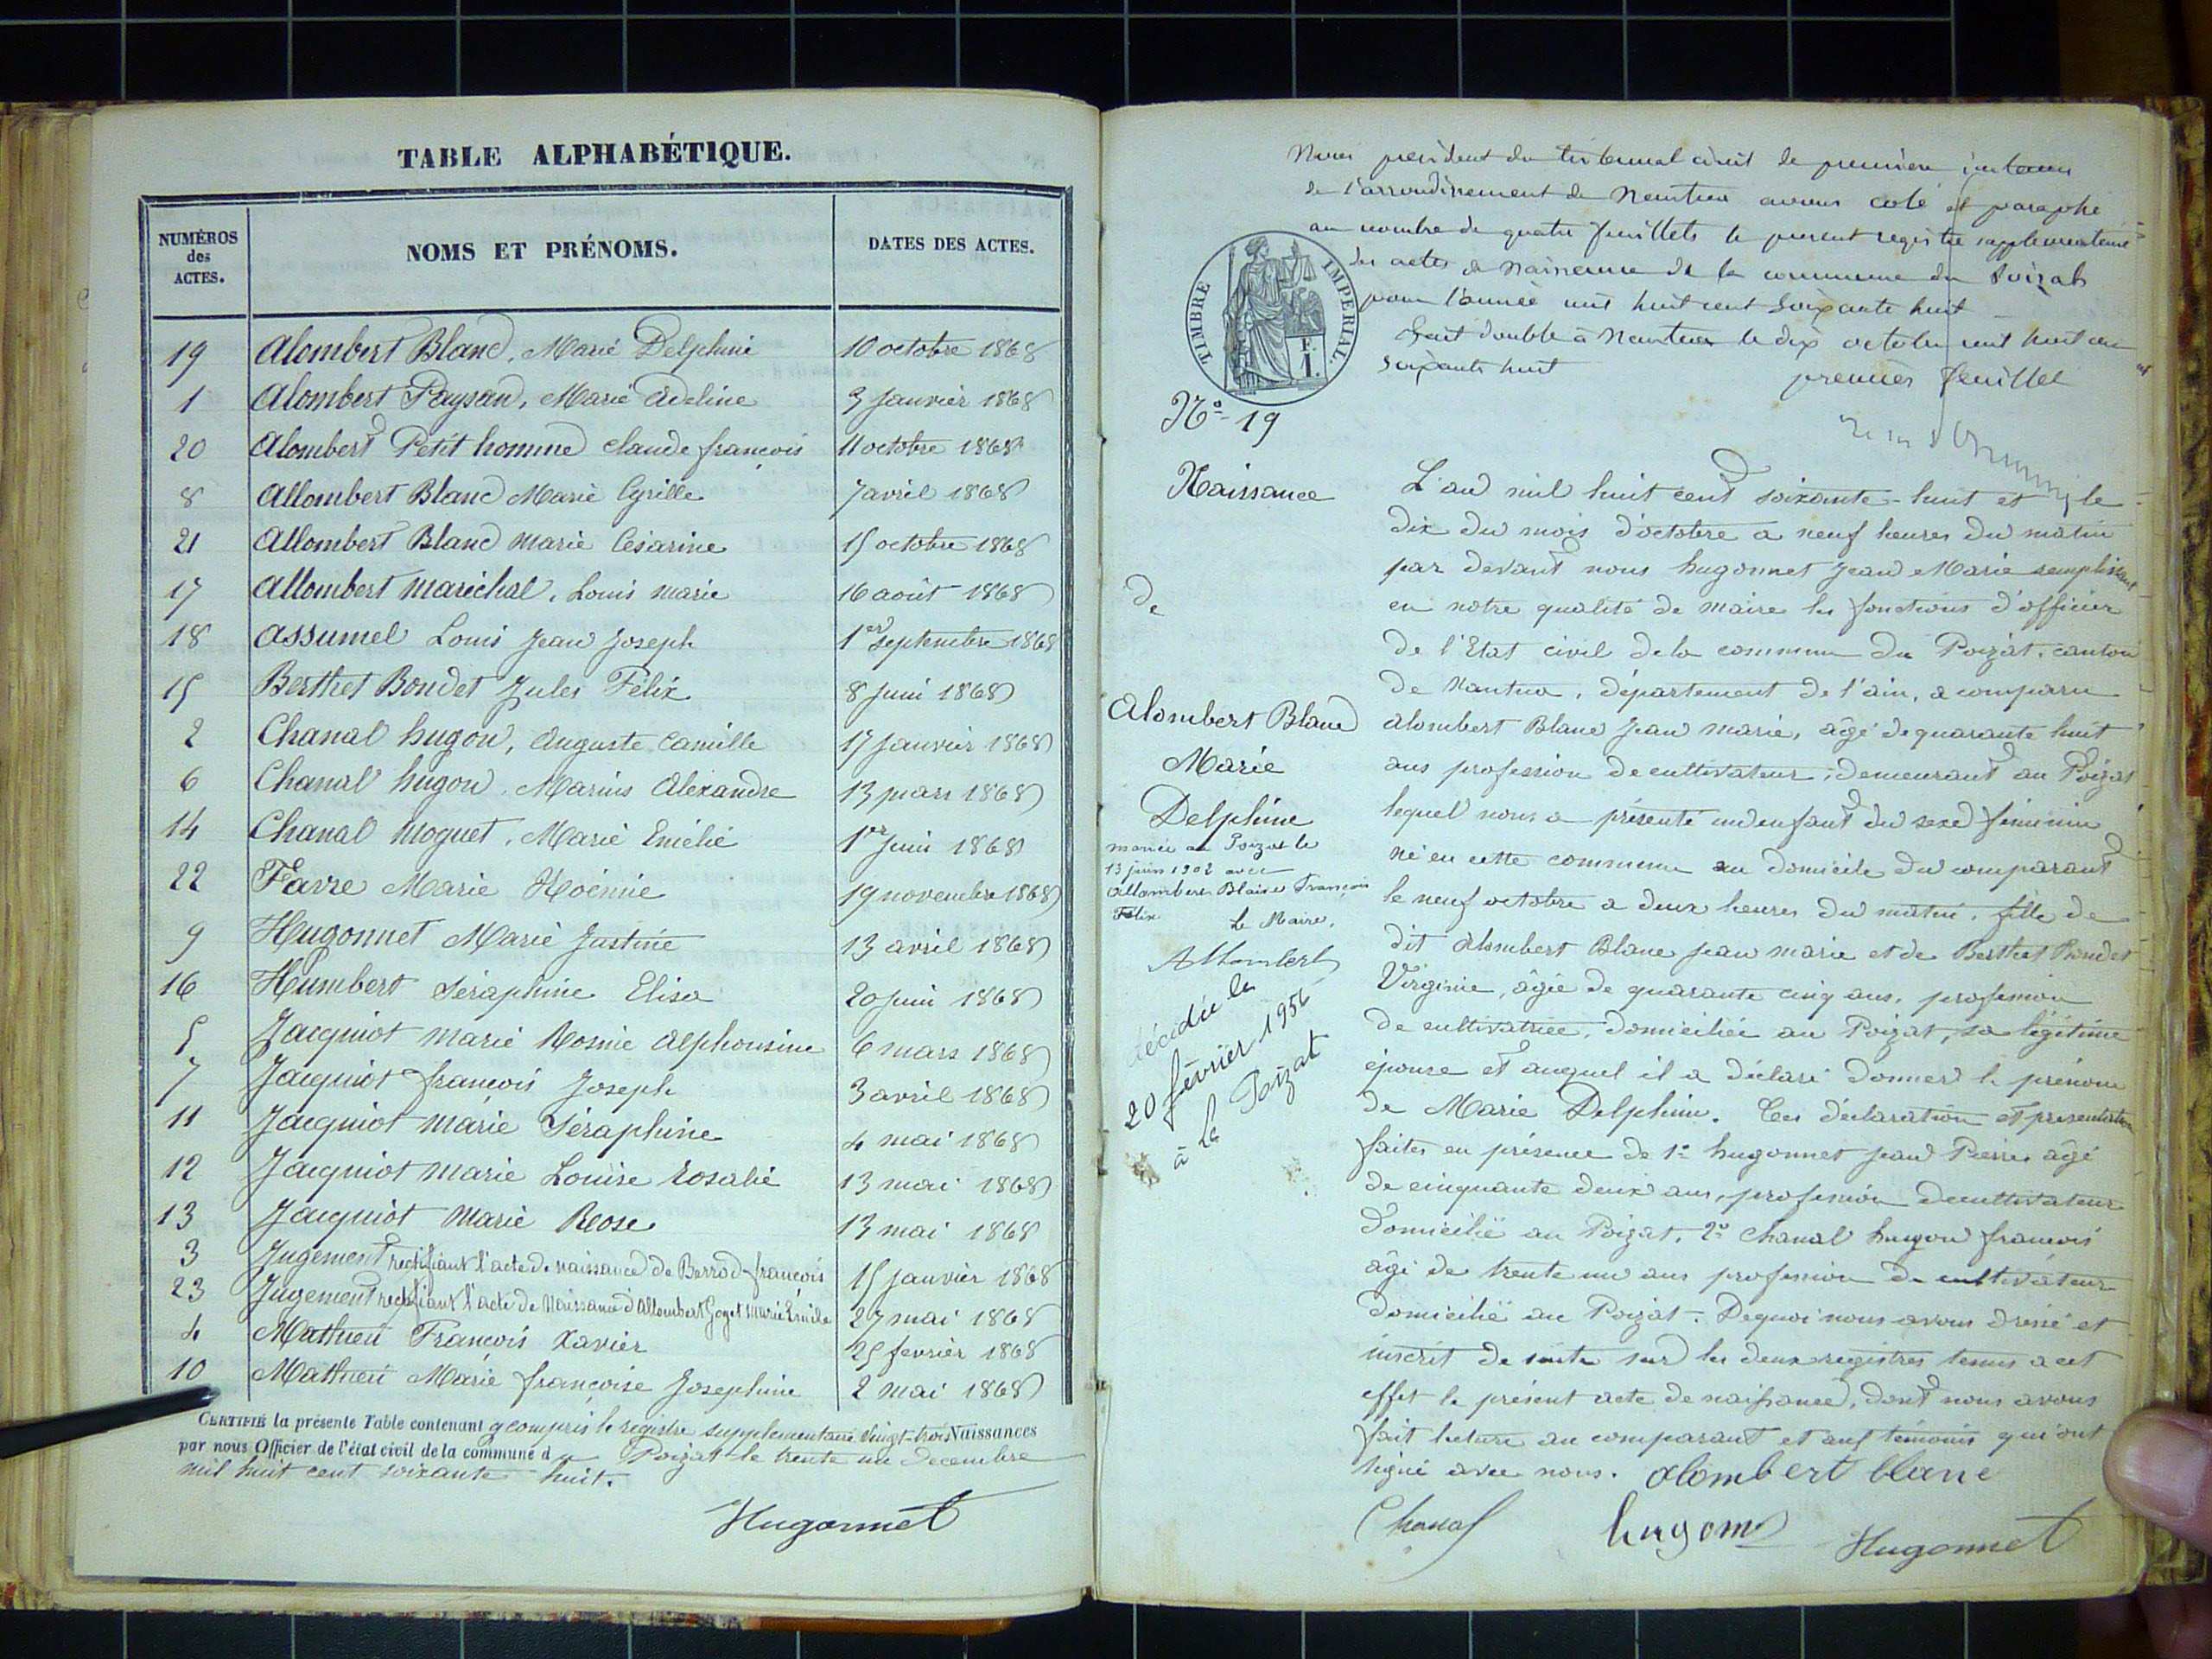 TABLE ALPHABÉTIQUE.
NUMÉROS des ACTES.
NOMS ET PRÉNOMS.
DATES DES ACTES.
19 Alombert Blanc, Marie Delphine 10 octobre 1868
1 Alombert Paysan, Marie Adeline 3 Janvier 1868
20 Alombert Petit homme Claude françois 11 octobre 1868
8 Allombert Blanc Marie Cyrille 7 avril 1868
21 Allombert Blanc Marie Césarine 15 octobre 1868
17 Allombert Maréchal, Louis Marie 16 août 1868
18 Assumel Louis Jean Joseph 1er Septembre 1868
15 Berthet Bondet Jules Félix 8 Juin 1868
2 Chanal hugon, Auguste Camille 17 Janvier 1868
6 Chanal hugon, Marius Alexandre 13 mars 1868
14 Chanal Moguet, Marie Emélie 1er Juin 1868
22 Favre Marie Noémie 19 novembre 1868
9 Hugonnet Marie Justine 13 avril 1868
16 Humbert Séraphine Elisa 20 Juin 1868
5 Jacquiot Marie Rosine Alphonsine 6 mars 1868
7 Jacquiot françois Joseph 3 avril 1868
11 Jacquiot Marie Séraphine 4 mai 1868
12 Jacquiot Marie Louise Rosalie 13 mai 1868
13 Jacquiot Marie Rose 13 mai 1868
3 Jugement rectifiant l'acte de naissance de Berrod françois 15 Janvier 1868
23 Jugement rectifiant l'acte de Naissance d'Allombert Goget Marie Emile 27 mai 1868
4 Mathieu François Xavier 25 fevrier 1868
10 Mathieu Marie françoise Josephine 2 mai 1868
CERTIFIÉ la présente Table contenant y compris le registre supplementaire Vingt-trois Naissances
par nous Officier de l'état civil de la commune d u Poizat le trente un Decembre
mil huit cent soixante huit.
Hugonnet
Nous president du tribunal civil de premiere instance
de l'arrondissement de Nantua avons coté et paraphé
au nombre de quatre feuillets le present registre supplementaire
des actes de naissance de la commune du Poizat
pour l'année mil huit cent soixante huit
fait double à Nantua le dix octobre mil huit cent
soixante huit
premier feuillet
TIMBRE IMPERIAL.
F.
1.
No 19
Naissance
de
Alombert Blanc
Marie
Delphine
mariée au Poizat le
13 juin 1902 avec
Allombert Blaise François
Félix
Le Maire,
Allombert
décédée le
20 février 1956
à Le Poizat
L'an mil huit cent soixante-huit et le
dix du mois d'octobre a neuf heures du matin
par devant nous hugonnet Jean Marie remplissant
en notre qualité de Maire les fonctions d'officier
de l'Etat civil de la commune du Poizat, canton
de Nantua, département de l'ain, a comparu
Alombert Blanc Jean Marie, âgé de quarante huit
ans profession de cultivateur, demeurant au Poizat
lequel nous a présenté un enfant du sexe féminin
né en cette commune au domicile du comparant
le neuf octobre a deux heures du matin, fille de
dit Alombert Blanc Jean Marie et de Berthet Bondet
Virginie, âgée de quarante cinq ans, profession
de cultivatrice, domiciliée au Poizat, sa légitime
épouse et auquel il a déclaré donner le prénom
de Marie Delphine. Ces déclaration et presentation
faites en présence de 1o hugonnet Jean Pierre âgé
de cinquante deux ans, profession de cultivateur
domicilié au Poizat, 2o Chanal hugon françois
âgé de trente un ans profession de cultivateur
domicilié au Poizat. De quoi nous avons dressé et
inscrit de suite sur les deux registres tenus a cet
effet le présent acte de naissance, dont nous avons
fait lecture au comparant et aux témoins qui ont
signé avec nous. Alombert blanc
Chanal hugon Hugonnet